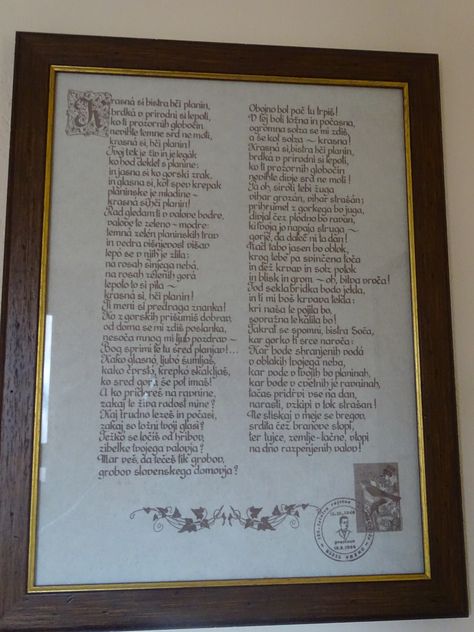 Krasnà si bistra hči planin,
brdkà v prirodni si lepoti,
ko ti prozornih globočin
nevihte temne srd ne moti,
krasnà si, hči planin!
Tvoj tek je živ in je legák
ko hod deklet s planine;
in jasna si ko gorski zrak,
in glasna si, kot spev krepak
planinske je mladine —
krasnà si, hči planin!
Rad gledam ti v valove bodre,
valove te zeleno-modre:
temna zelén planinskih trav
in vedra višnjevost višav
lepo se v njih je zlila;
na rosah sinjega nebá,
na rosah zelenih gorá
lepoto si pila —
krasnà si, hči planin!
Ti meni si predraga znanka!
Ko z gorskih prišumiš dobrav,
od doma se mi zdiš poslanka,
nesoča mnog mi ljub pozdrav —
Bog sprimi te tu sred planjav!...
Kako glasnò, ljubo šumljaš,
kako čvrstó, krepkó skakljaš,
ko sred gorá še pot imaš!
A ko pridereš na ravnine,
zakaj te živa radost mine?
Kaj trudno lezeš in počasi,
zakaj so tožni tvoji glasi?
Težkó se ločiš od hribov,
zibelke tvojega valovja?
Mar veš, da tečeš tik grobov,
grobov slovenskega domovja?
Obojno bol pač tu trpiš!
V tej boli tožna in počasna,
ogromna solza se mi zdiš,
a še kot solza — krasna!
Krasnà si, bistra hči planin,
brdkà v prirodni si lepoti,
ko ti prozornih globočin
nevihte divje srd ne moti!
Pa oh, siroti tebi žuga
vihar grozán, vihar strašán;
prihrumel z gorkega bo juga,
divjal čez plodno bo raván,
ki tvoja jo napaja struga —
gorjé, da daleč ni ta dan!
Nad tabo jasen bo oblok,
krog tebe pa svinčena toča
in dež krvav in solz potok
in blisk in grom — oh, bitva vroča!
Tod sekla bridka bodo jekla,
in ti mi boš krvava tekla:
kri naša te pojila bo,
sovražna te kalila bo!
Takrat se spomni, bistra Soča,
kar gorko ti srce naroča:
Kar bode shranjenih vodá
v oblakih tvojega neba,
kar vode v tvojih bo planinah,
kar bode v cvetnih je ravninah,
tačas pridrvi vse na dan,
narasti, vzkipi v tok strašan!
Ne stiskaj v meje se bregov,
srdita čez branove stopi,
ter tujce, zemlje-lačne, vtopi
na dno razpenjenih valov!